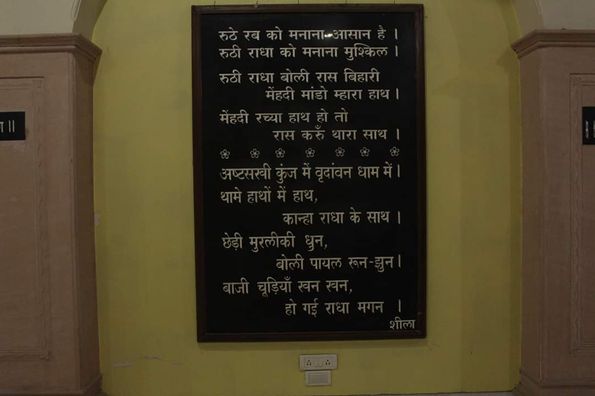 रुठे रब को मनाना आसान है ।
रुठी राधा को मनाना मुश्किल ।
रुठी राधा बोली रास बिहारी
मेंहदी मांडो म्हारा हाथ ।
मेंहदी रच्या हाथ हो तो
रास करुँ थारा साथ ।
अष्टसखी कुंज में वृदांवन धाम में।
थामे हाथों में हाथ,
कान्हा राधा के साथ ।
छेड़ी मुरलीकी धुन,
बोली पायल रून-झुन।
बाजी चूड़ियाँ खन खन,
हो गई राधा मगन ।
शीला